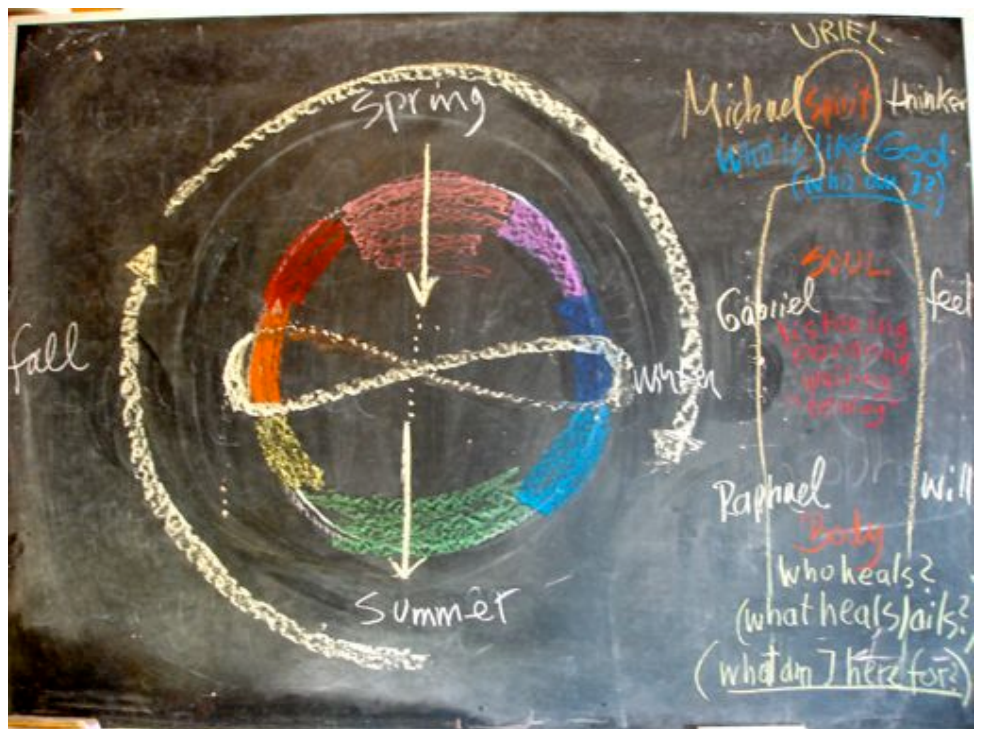 Spring
fall
Winter
Summer
URIEL
Michael Spirit thinker
Who is like God
(who am I?)
SOUL
Gabriel feel
Listening
waiting
Raphael will
Body
who heals?
(what heals/ails?)
(what am I here for?)